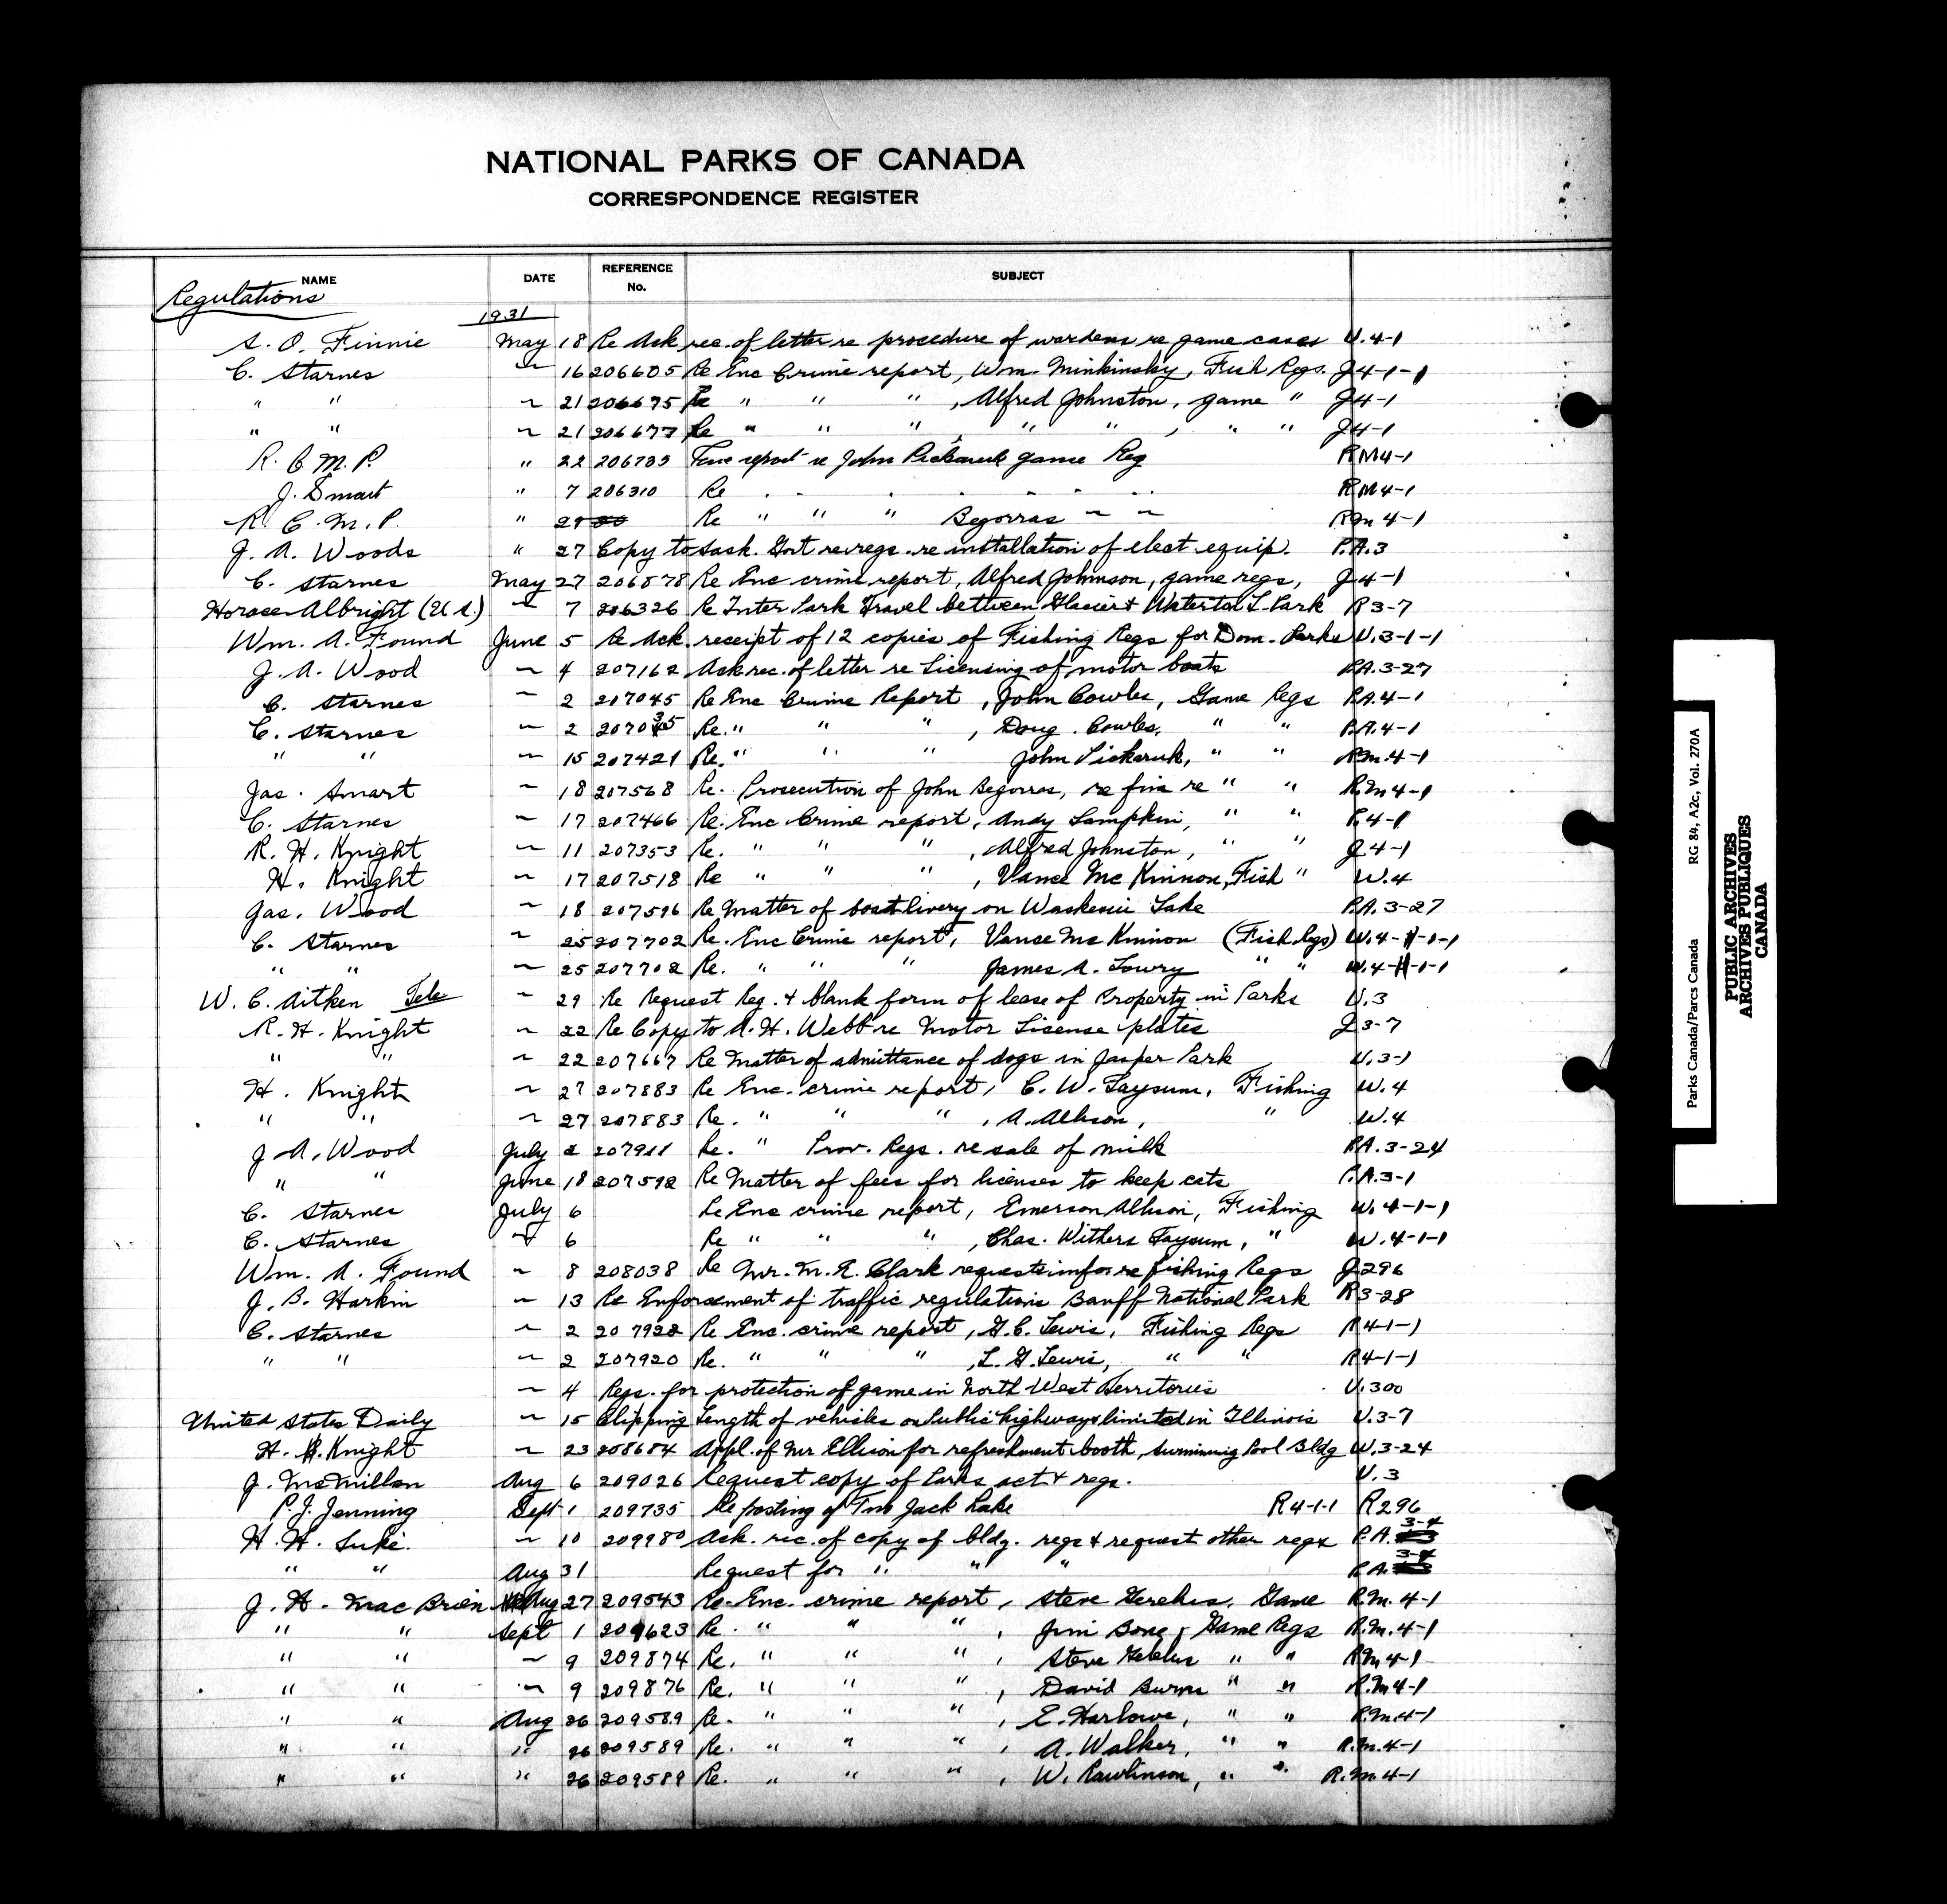 NATIONAL PARKS OF CANADA
CORRESPONDENCE REGISTER
NAME DATE REFERENCE No. SUBJECT
Regulations
1931
A. O. Finnie May 18 Re Ack rec. of letter re procedure of wardens re game cases U.4-1
C. Starnes ~ 16 206605 Re Enc Crime report, Wm. Minkinsky, Fish Regs. J4-1-1
" " ~ 21 206675 Re " " " , Alfred Johnston, game " J4-1
" " ~ 21 206677 Re " " " , " " , " " J4-1
R. C. M. P. " 22 206785 report re John game Reg RM4-1
J. Smart " 7 206310 Re " " " " " " RM4-1
R. C. M. P. " 29 Re " " " Begorras ~ ~ RM 4-1
J. A. Woods " 27 Copy to Sask. Govt re regs. re installation of elect equip. P.A.3
C. Starnes May 27 206878 Re Enc crime report, Alfred Johnson, game regs, J4-1
Horace Albright (U.S.) ~ 7 206326 Re Inter Park Travel between Glacier & Waterton L. Park R3-7
Wm. A. Found June 5 Re Ack. receipt of 12 copies of Fishing Regs for Dom. Parks U.3-1-1
J. A. Wood ~ 4 207162 Ack rec. of letter re Licensing of motor boats P.A.3-27
C. Starnes ~ 2 207045 Re Enc Crime Report, John Cowles, Game Regs P.A.4-1
C. Starnes ~ 2 Re. " " " , Doug. Cowles, " " P.A.4-1
" " ~ 15 207421 Re. " " " John " " R.M.4-1
Jas. Smart ~ 18 207568 Re. Prosecution of John Begorras, re fine re " " R.M4-1
C. Starnes ~ 17 207466 Re. Enc Crime report, Andy Lampkin, " " R.4-1
R. H. Knight ~ 11 207353 Re. " " " , Alfred Johnston, " " J4-1
H. Knight ~ 17 207518 Re " " " , Vance McKinnon, Fish " W.4
Jas. Wood ~ 18 207596 Re Matter of boat livery on Waskesiu Lake P.A.3-27
C. Starnes ~ 25 207702 Re. Enc Crime report, Vance McKinnon (Fish Regs) W.4-1-1
" " ~ 25 207702 Re. " " " James A. Lowry " " W.4-1-1
W. C. Aitken Tele ~ 29 Re Request Reg. & blank form of lease of Property in Parks U.3
R. H. Knight ~ 22 Re Copy to A. H. Webb re Motor License plates J3-7
" " ~ 22 207667 Re Matter of admittance of dogs in Jasper Park U.3-1
H. Knight ~ 27 207883 Re Enc. crime report, C. W. Taysum, Fishing W.4
" " ~ 27 207883 Re. " " " , A. Allison, " W.4
J. A. Wood July 2 207911 Re. " Prov. Regs. re sale of milk P.A.3-24
" " June 18 207592 Re Matter of fees for licenses to keep cats P.A.3-1
C. Starnes July 6 Re Enc crime report, Emerson Allison, Fishing W.4-1-1
C. Starnes ~ 6 Re " " " , Chas. Withers Taysum, " W.4-1-1
Wm. A. Found ~ 8 208038 Re Mr. M. R. Clark requests info re fishing Regs J296
J. B. Harkin ~ 13 Re Enforcement of traffic regulations Banff National Park R3-28
C. Starnes ~ 2 207922 Re Enc. crime report, G. C. Lewis, Fishing Regs R4-1-1
" " ~ 2 207920 Re. " " " , L. G. Lewis, " " R4-1-1
~ 4 Regs. for protection of game in North West Territories U.300
United States Daily ~ 15 Clipping Length of vehicles on Public highways limited in Illinois U.3-7
H. Knight ~ 23 208684 Appl. of Mr Ellison for refreshment booth, Swimming Pool Bldg W.3-24
J. McMillan Aug 6 209026 Request copy of Parks act & regs. U.3
P. J. Jenning Sept 1 209735 Re posting of Two Jack Lake R4-1-1 R296
H. H. ~ 10 209980 Ack. rec. of copy of bldg. regs & request other regs P.A. 3-4
" " Aug 31 Request for " " " P.A. 3-4
J. H. MacBrien Aug 27 209543 Re. Enc. crime report, Steve Game R.M.4-1
" " Sept 1 209623 Re. " " " , Jim Bone, Game Regs R.M.4-1
" " ~ 9 209874 Re. " " " , Steve " " RM4-1
" " ~ 9 209876 Re. " " " , David Burns " " R.M4-1
" " Aug 26 209589 Re. " " " , E. Harlowe, " " R.M.4-1
" " " 26 209589 Re. " " " , A. Walker, " " R.M.4-1
" " " 26 209589 Re. " " " , W. Rawlinson, " " R.M.4-1
Parks Canada/Parcs Canada RG 84, A2c, Vol. 270A
PUBLIC ARCHIVES
ARCHIVES PUBLIQUES
CANADA